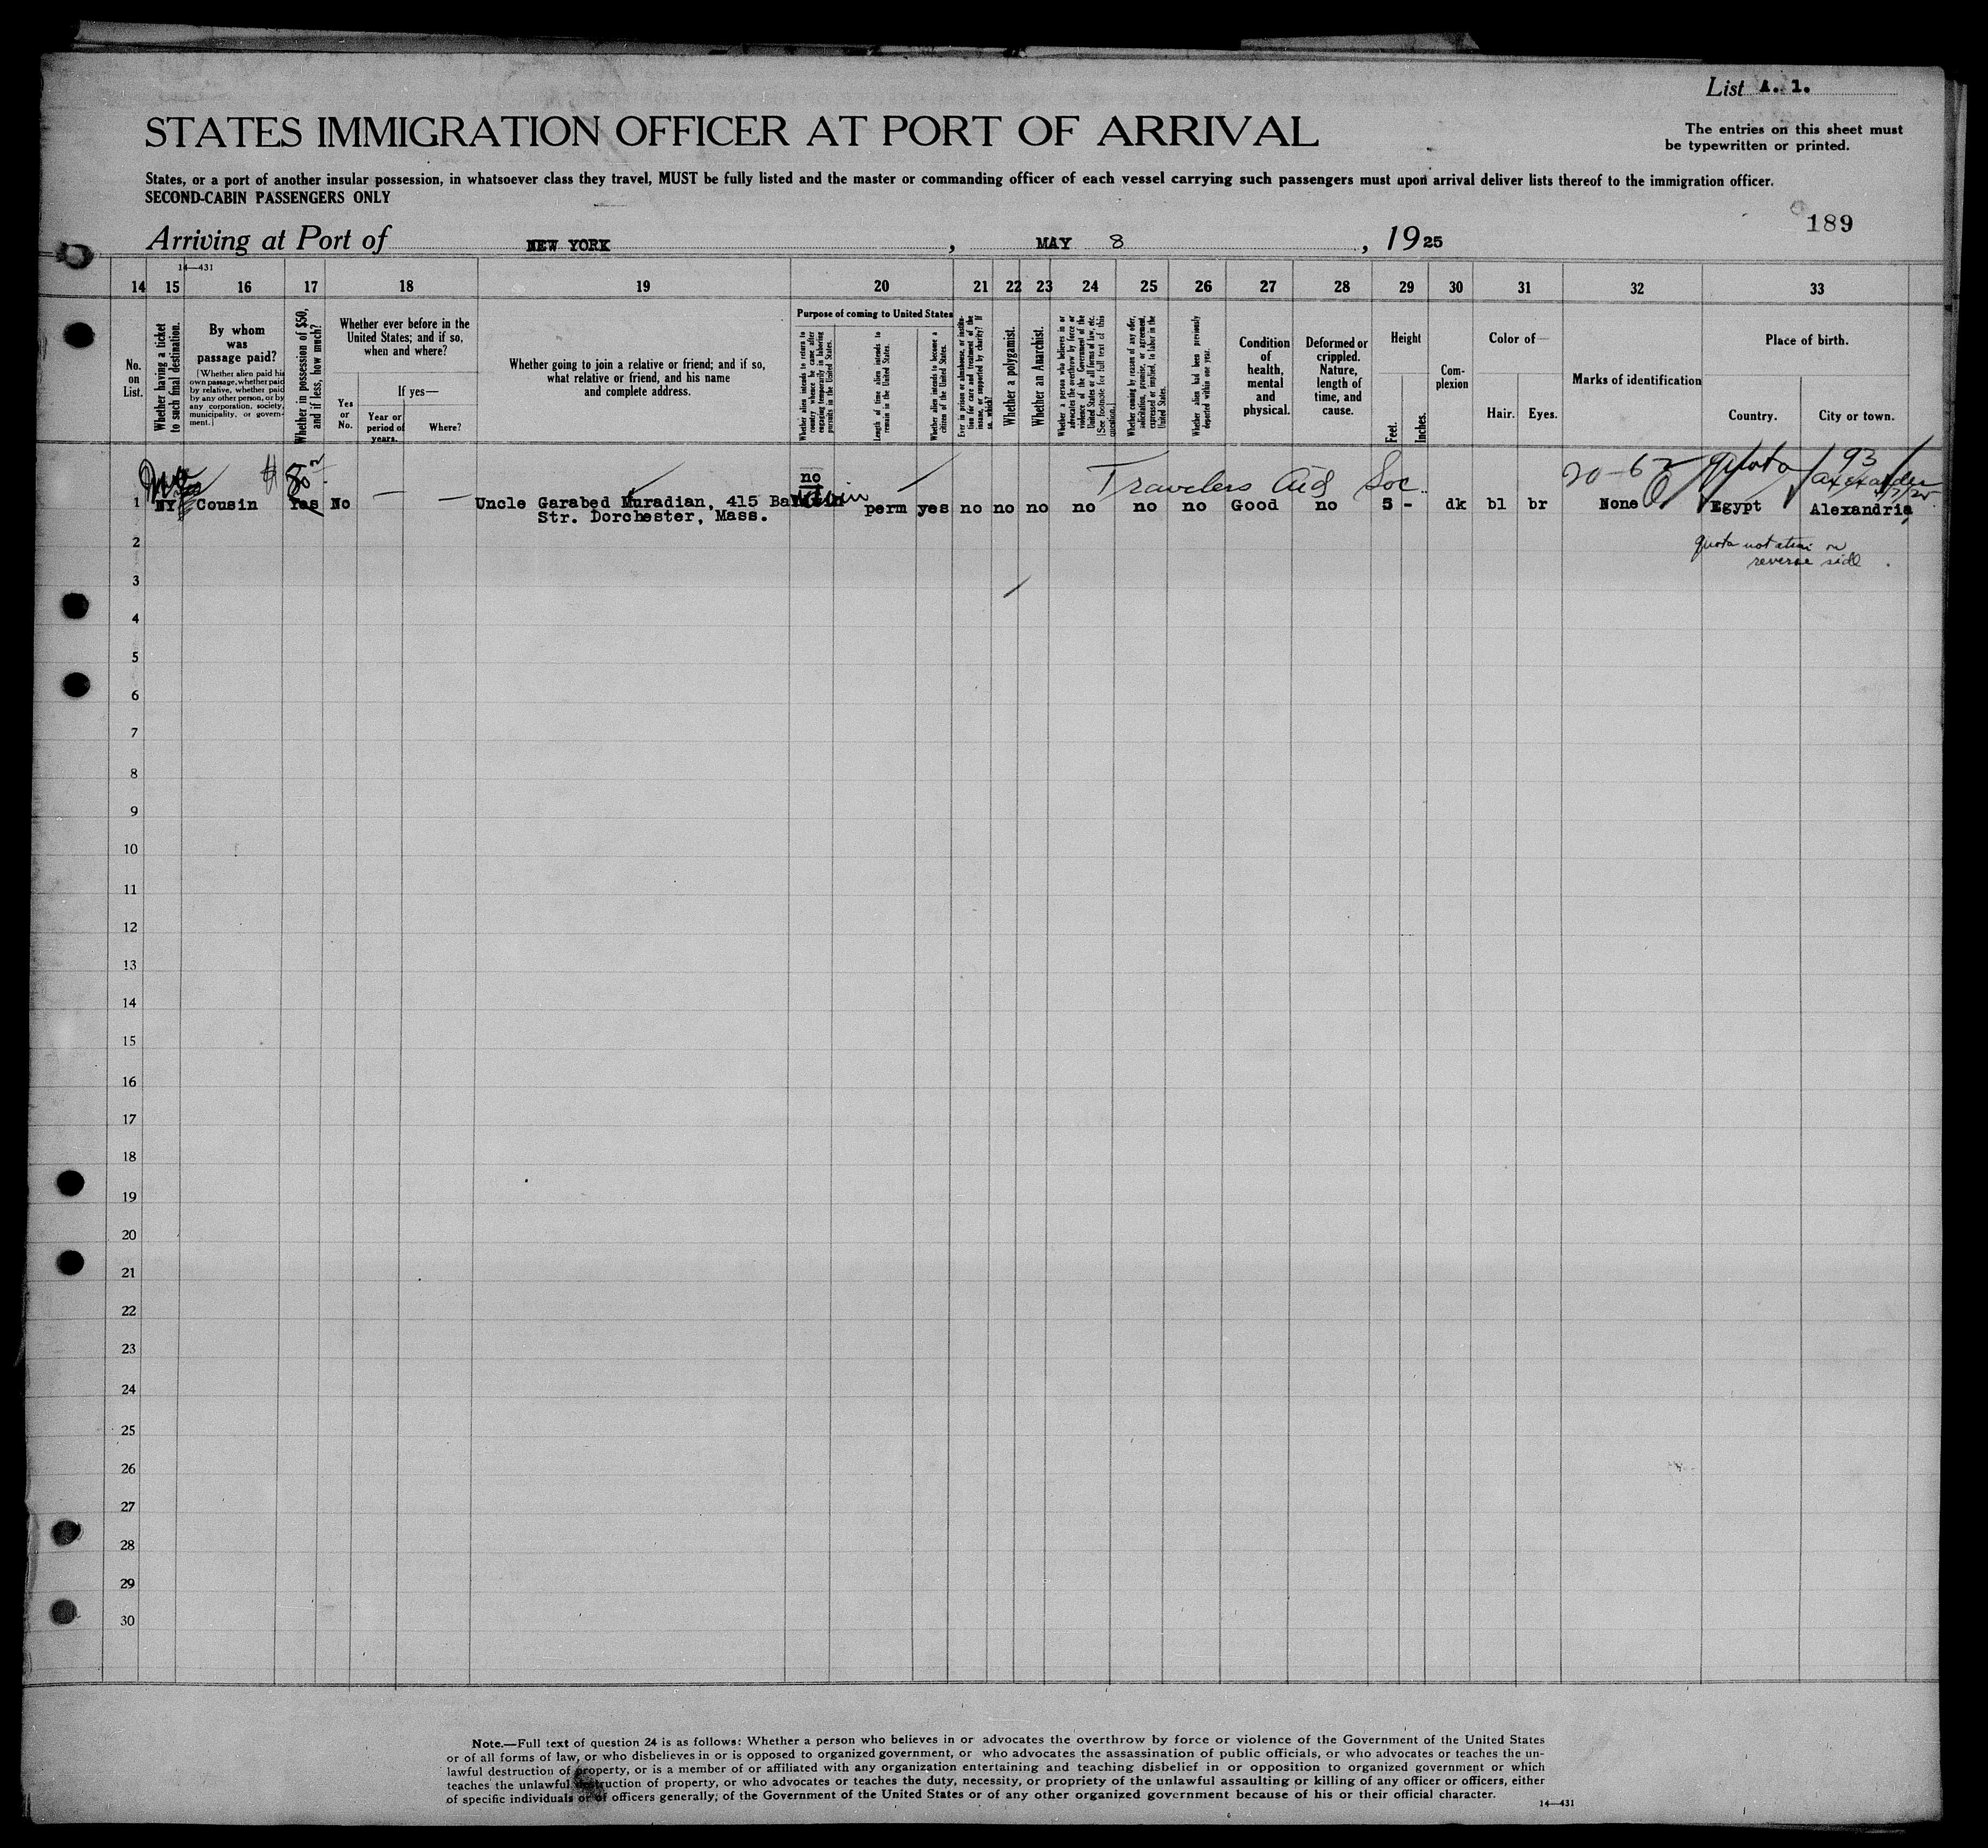 List A. 1.
STATES IMMIGRATION OFFICER AT PORT OF ARRIVAL
The entries on this sheet must
be typewritten or printed.
States, or a port of another insular possession, in whatsoever class they travel, MUST be fully listed and the master or commanding officer of each vessel carrying such passengers must upon arrival deliver lists thereof to the immigration officer.
SECOND-CABIN PASSENGERS ONLY
189
Arriving at Port of NEW YORK, MAY 8, 1925
14—431
14 15 16 17 18 19 20 21 22 23 24 25 26 27 28 29 30 31 32 33
No. on List.
Whether having a ticket to such final destination.
By whom was passage paid?
[Whether alien paid his own passage, whether paid by relative, whether paid by any other person, or by any corporation, society, municipality, or government.]
Whether in possession of $50, and if less, how much?
Whether ever before in the United States; and if so, when and where?
Yes or No.
If yes—
Year or period of years.
Where?
Whether going to join a relative or friend; and if so, what relative or friend, and his name and complete address.
Purpose of coming to United States
Whether alien intends to return to country whence he came after engaging temporarily in laboring pursuits in the United States.
Length of time alien intends to remain in the United States.
Whether alien intends to become a citizen of the United States.
Ever in prison or almshouse, or institution for care and treatment of the insane, or supported by charity? If so, which?
Whether a polygamist.
Whether an Anarchist.
Whether a person who believes in or advocates the overthrow by force or violence of the Government of the United States or all forms of law, etc. [See footnote for full text of this question.]
Whether coming by reason of any offer, solicitation, promise, or agreement, expressed or implied, to labor in the United States.
Whether alien had been previously deported within one year.
Condition of health, mental and physical.
Deformed or crippled. Nature, length of time, and cause.
Height
Feet. Inches.
Complexion
Color of—
Hair. Eyes.
Marks of identification
Place of birth.
Country. City or town.
$ 80
no
Travelers Aid Soc.
20-62 quota 93
1 NY Cousin Yes No — — Uncle Garabed Muradian, 415 Baldwin perm yes no no no no no no Good no 5 - dk bl br None Egypt Alexandria
Str. Dorchester, Mass.
quota notation on
reverse side
2
3
4
5
6
7
8
9
10
11
12
13
14
15
16
17
18
19
20
21
22
23
24
25
26
27
28
29
30
Note.—Full text of question 24 is as follows: Whether a person who believes in or advocates the overthrow by force or violence of the Government of the United States
or of all forms of law, or who disbelieves in or is opposed to organized government, or who advocates the assassination of public officials, or who advocates or teaches the un-
lawful destruction of property, or is a member of or affiliated with any organization entertaining and teaching disbelief in or opposition to organized government or which
teaches the unlawful destruction of property, or who advocates or teaches the duty, necessity, or propriety of the unlawful assaulting or killing of any officer or officers, either
of specific individuals or of officers generally, of the Government of the United States or of any other organized government because of his or their official character.
14—431